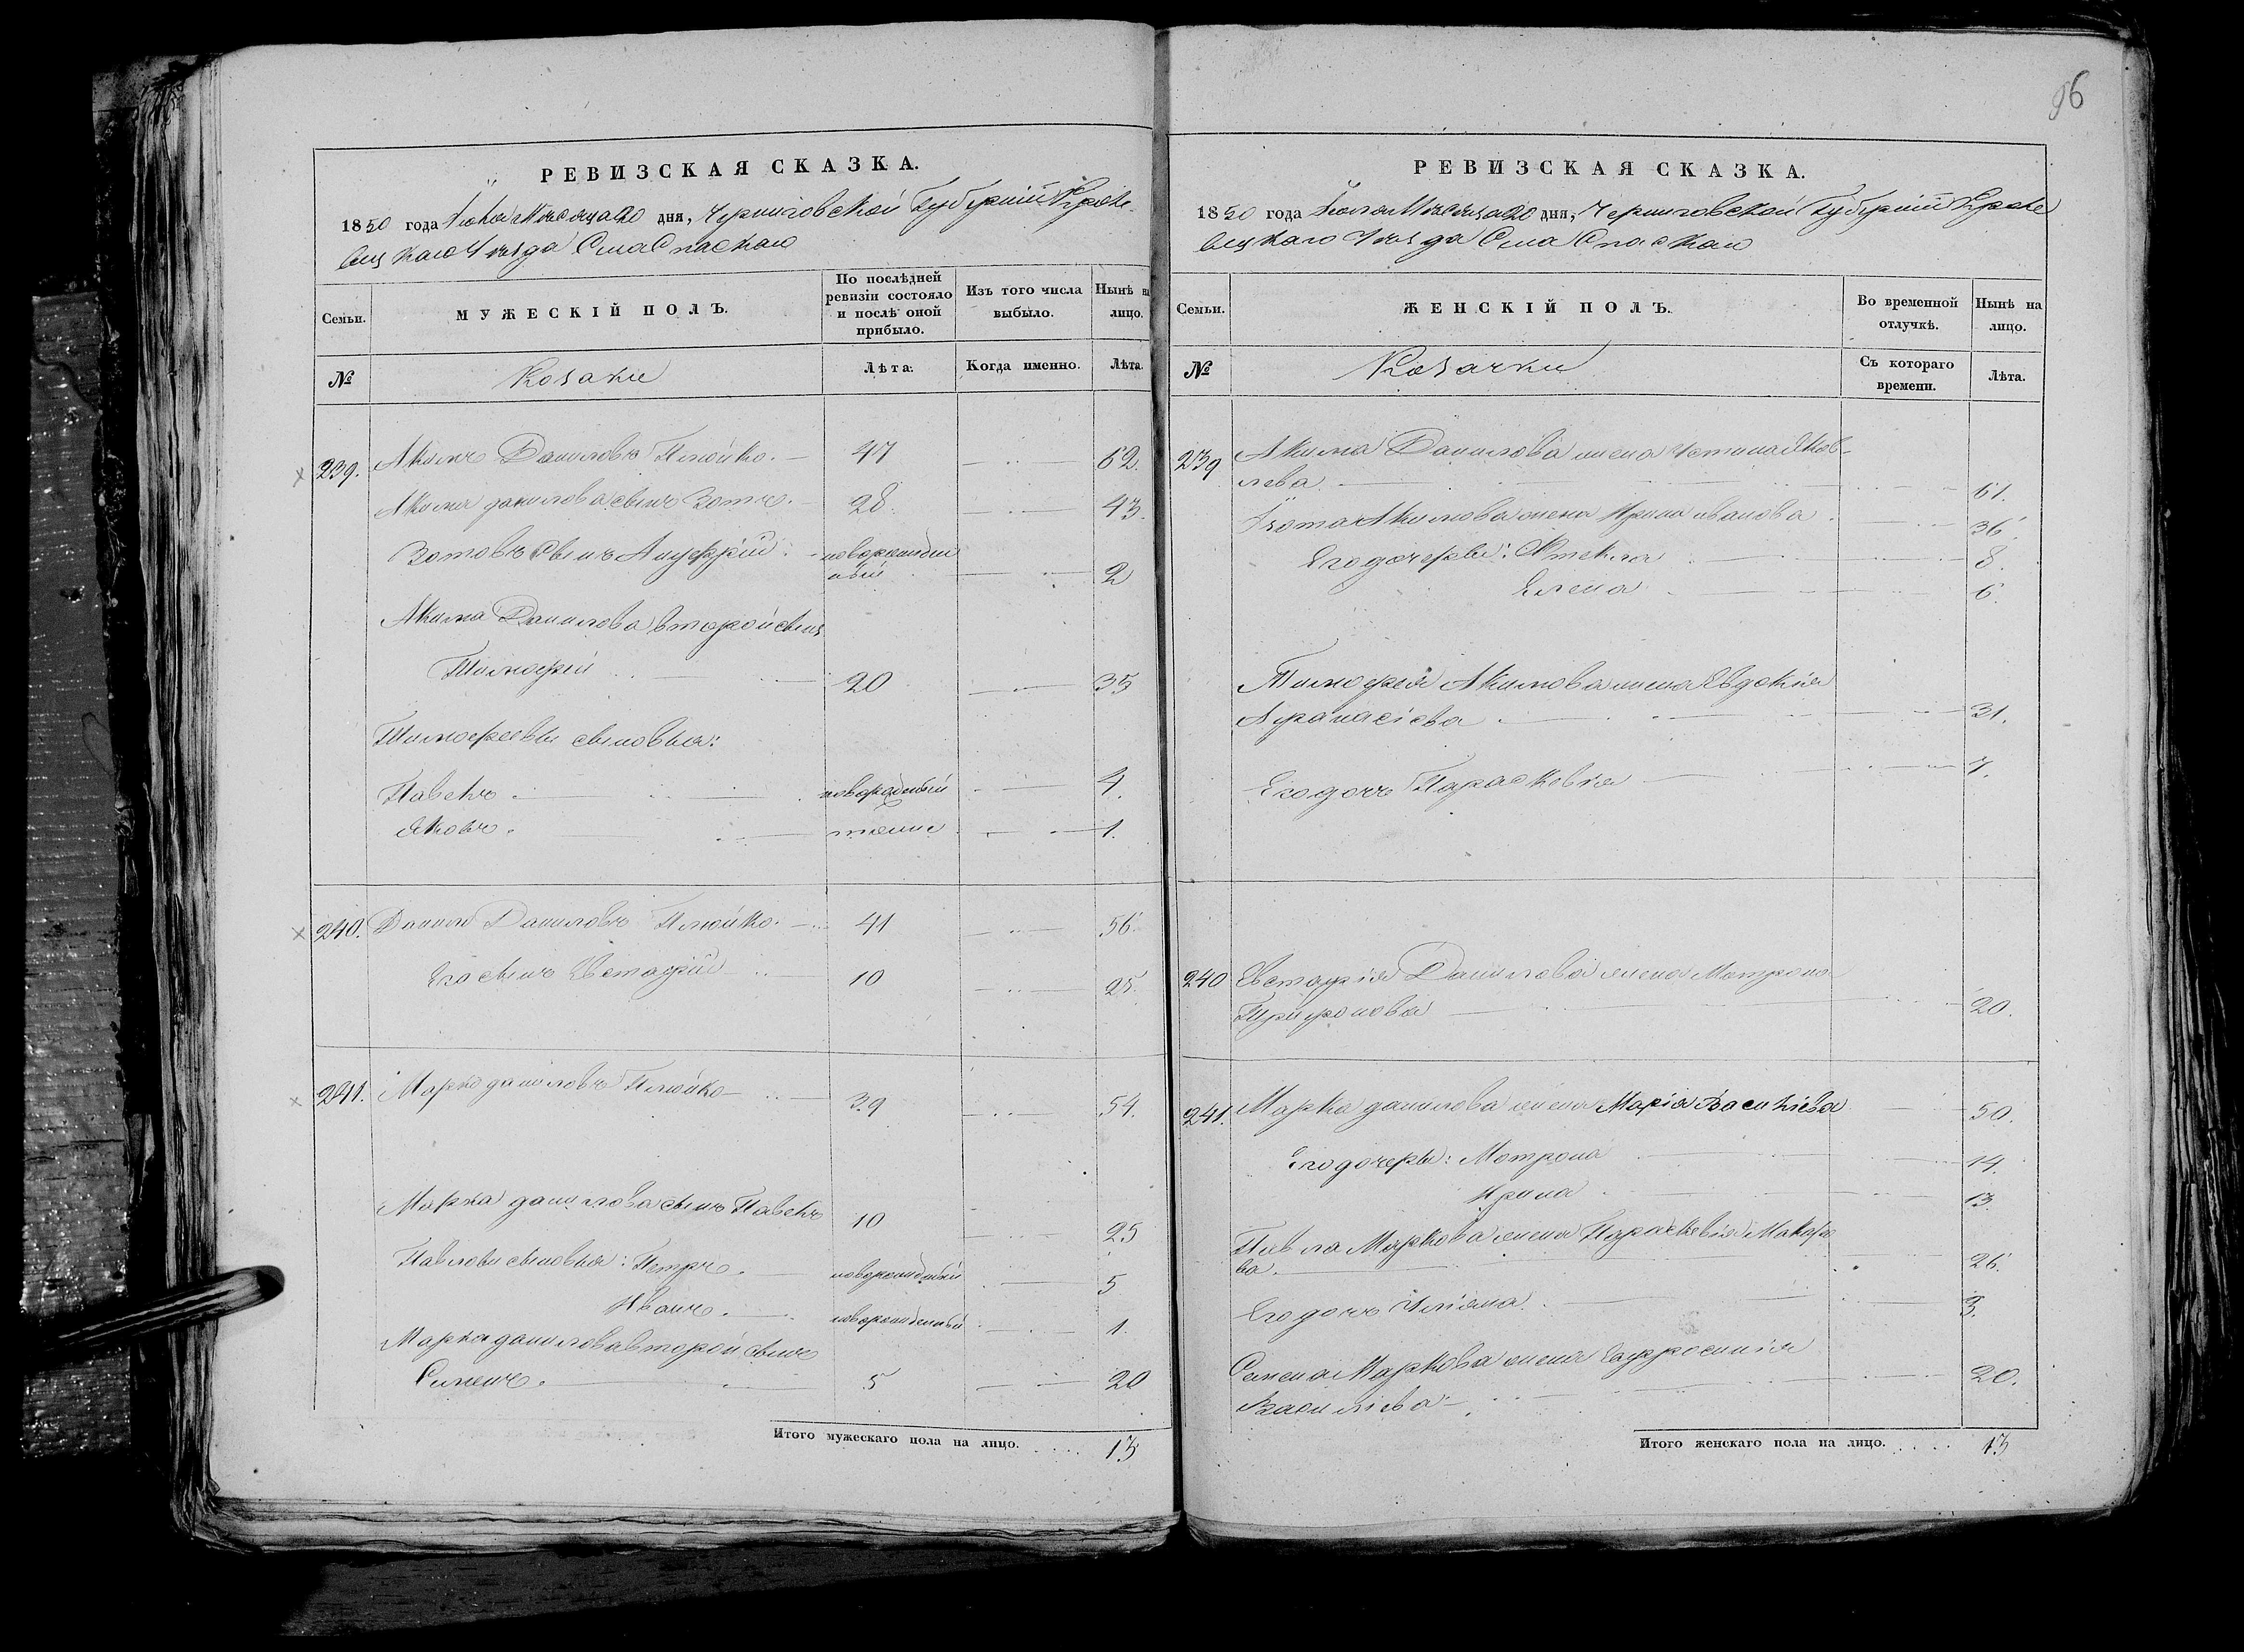 96
РЕВИЗСКАЯ СКАЗКА.
1850 года Іюля Мѣсяца 20 дня, Черниговской Губерніи Кроле-
вецкаго Уѣзда Села Спаскаго
Семьи.
МУЖЕСКІЙ ПОЛЪ.
По послѣдней ревизіи состояло и послѣ оной прибыло.
Изъ того числа выбыло.
Нынѣ на лицо.
№
Козаки
Лѣта.
Когда именно.
Лѣта.
239. Акимъ Даниловъ Плюйко. 47 62.
Акима данилова сынъ Зотъ. 28. 43.
Зотовъ Сынъ Андрей новорожден
ный 2
Акима Данилова второй сынъ
Тимофей 20 35
Тимофеевы сыновья:
Павелъ новорожденный 4.
Яковъ. тоже 1.
240. Данило Даниловъ Плюйко. 41 56.
Его сынъ Евстафій 10 25.
241. Марко даниловъ Плюйко 39 54.
Марка данилова сынъ Павелъ 10 25
Павловы сыновья: Петръ. новорожденный 5
Иванъ. новорожденный 1.
Марка данилова второй сынъ
Семенъ. 5 20
Итого мужескаго пола на лицо. 13
РЕВИЗСКАЯ СКАЗКА.
1850 года Іюля Мѣсяца 20 дня, Черниговской Губерніи Кроле
вецкаго Уѣзда Села Спаскаго
Семьи.
ЖЕНСКІЙ ПОЛЪ.
Во временной отлучкѣ.
Нынѣ на лицо.
№
Козачки
Съ котораго времени.
Лѣта.
239 Акима Данилова жена Устина Яков-
лева 61.
Изота Акимова жена Ирина Иванова 36.
Его дочери: Фтекла 8.
Елена 6.
Тимофея Акимова жена Евдокія
Афанасіева 31.
Его дочь Парасковія 7.
240 Евстафія Данилова жена Матрона
Трифонова 20.
241. Марка данилова жена Марія Василіева 50.
Его дочери: Матрона 14.
Ирина 13.
Павла Маркова жена Параскевія Макаро
ва. 26.
Его дочь Уліяна. 3.
Семена Маркова жена Евфросинія
Василіева 20.
Итого женскаго пола на лицо. 13